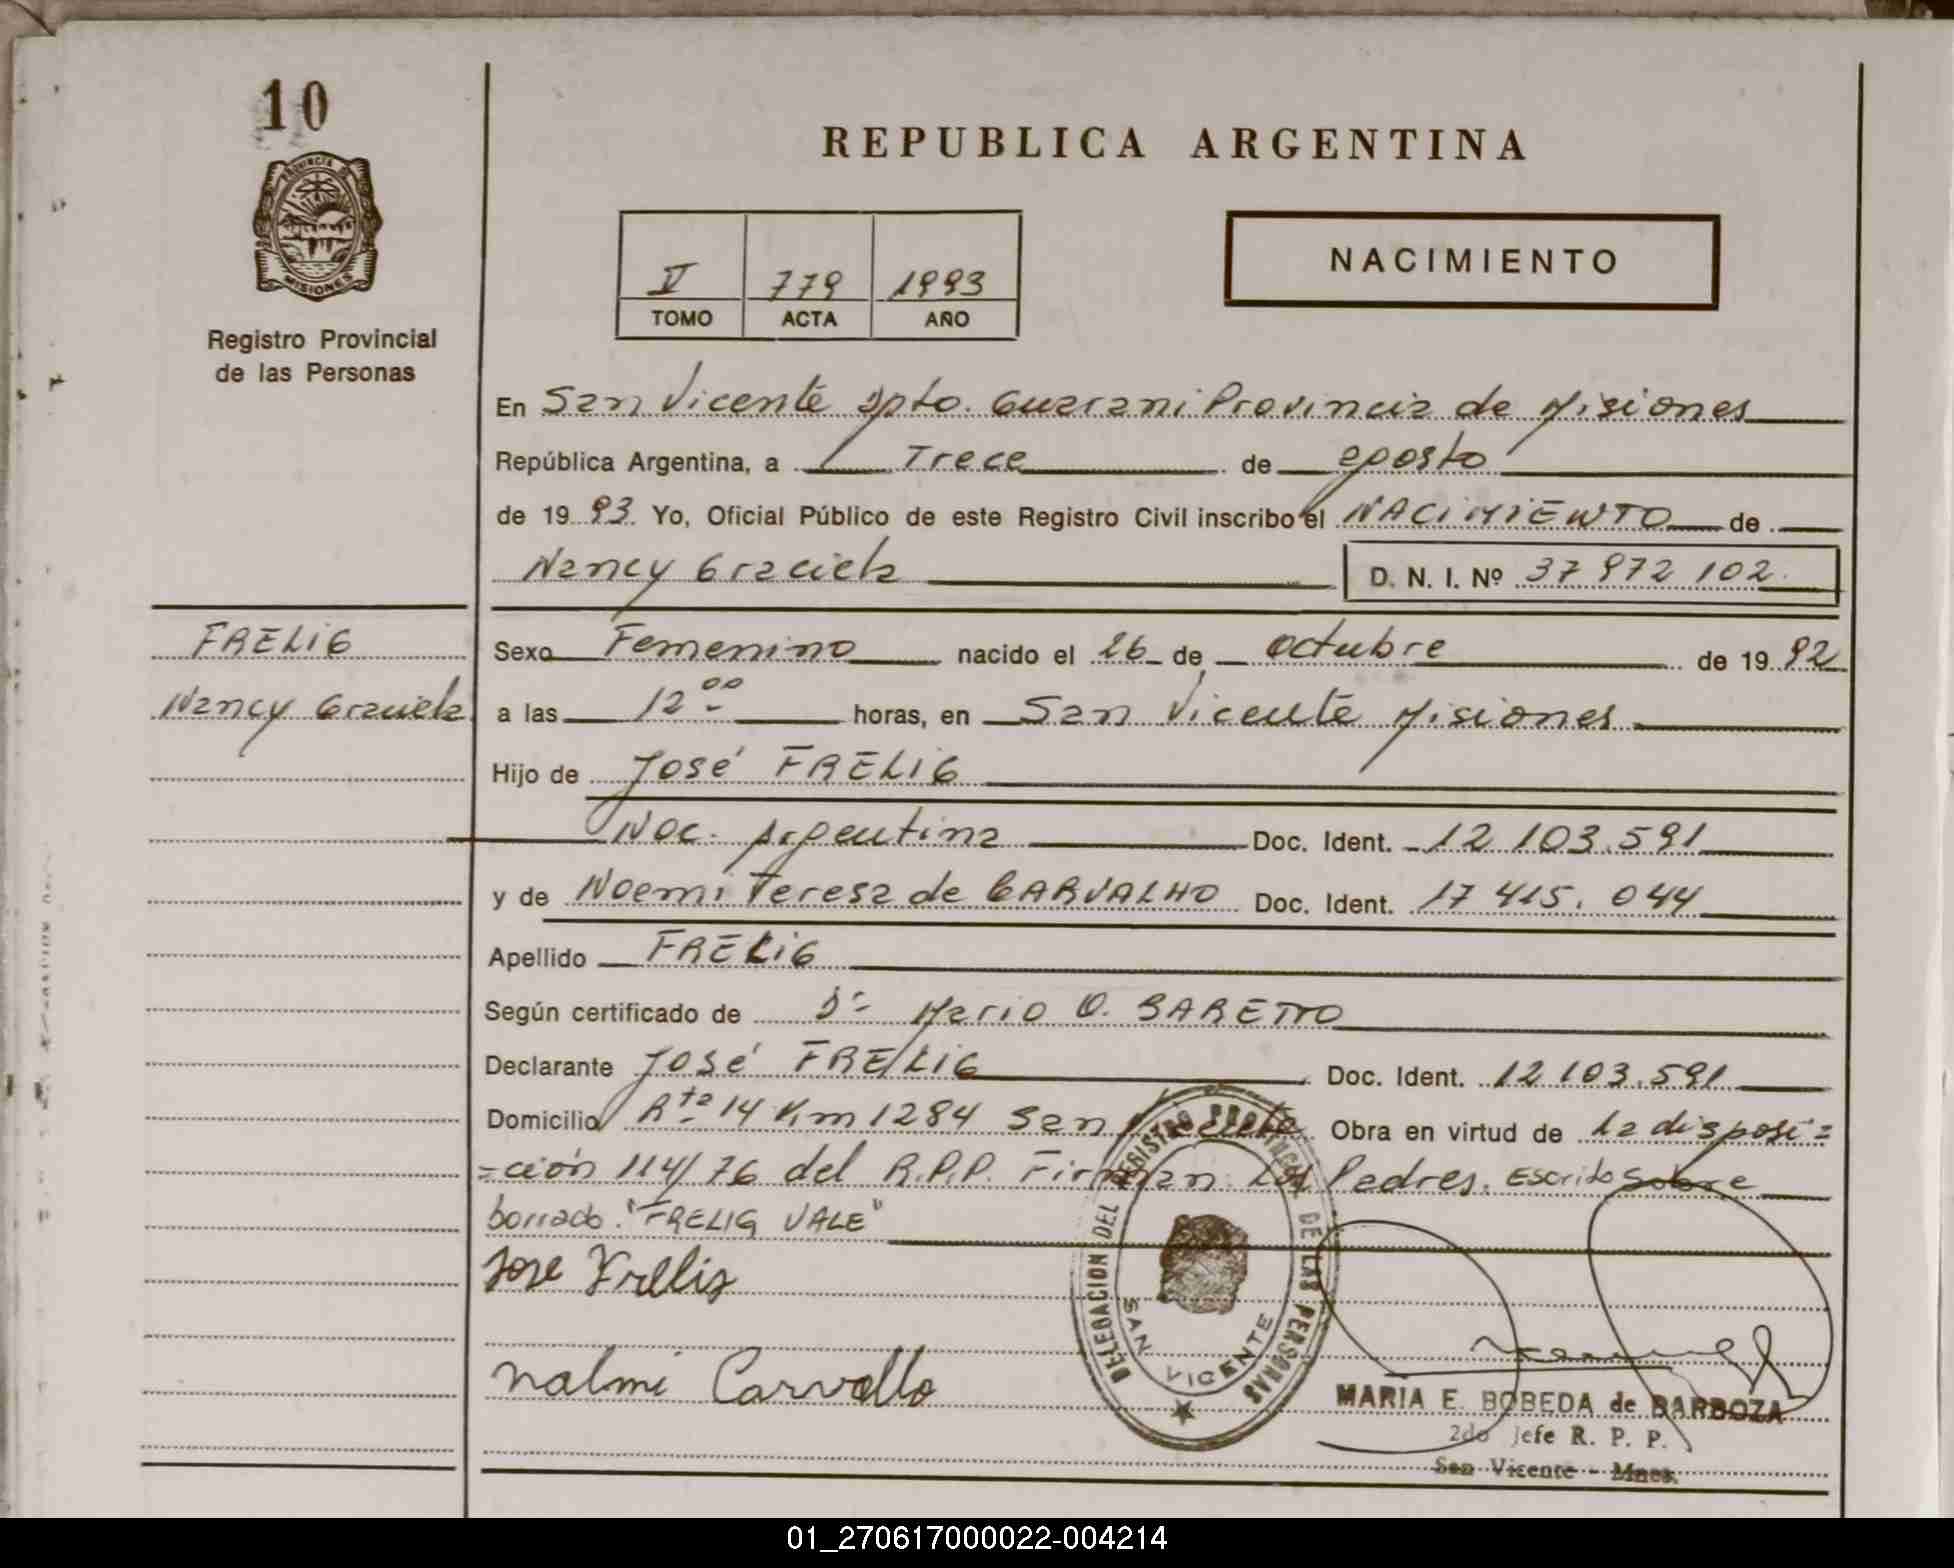 10
PROVINCIA DE
MISIONES
Registro Provincial
de las Personas
REPUBLICA ARGENTINA
V 779 1993
TOMO ACTA AÑO
NACIMIENTO
En San Vicente Dpto. Guarani Provincia de Misiones
República Argentina, a Trece de agosto
de 1993. Yo, Oficial Público de este Registro Civil inscribo el NACIMIENTO de
Nancy Graciela D. N. I. Nº 37 972 102.
FRELIG
Nancy Graciela
Sexo Femenino nacido el 26 de octubre de 1992
a las 12 00 horas, en San Vicente Misiones
Hijo de José FRELIG
Nac. Argentina Doc. Ident. 12 103.591
y de Noemi Teresa de CARVALHO Doc. Ident. 17 415.044
Apellido FRELIG
Según certificado de Dr Mario O. BARETTO
Declarante José FRELIG Doc. Ident. 12 103.591
Domicilio Rta 14 Km 1284 San Vicente Obra en virtud de la disposi=
=ción 114/76 del R.P.P. Firman Los Padres. Escrito sobre
borrado. "FRELIG VALE"
Jose Frelig
nalmi Carvallo
DELEGACION DEL REGISTRO PROVINCIAL DE LAS PERSONAS
SAN VICENTE
MARIA E. BOBEDA de BARBOZA
2do Jefe R. P. P.
San Vicente - Mnes.
01_270617000022-004214